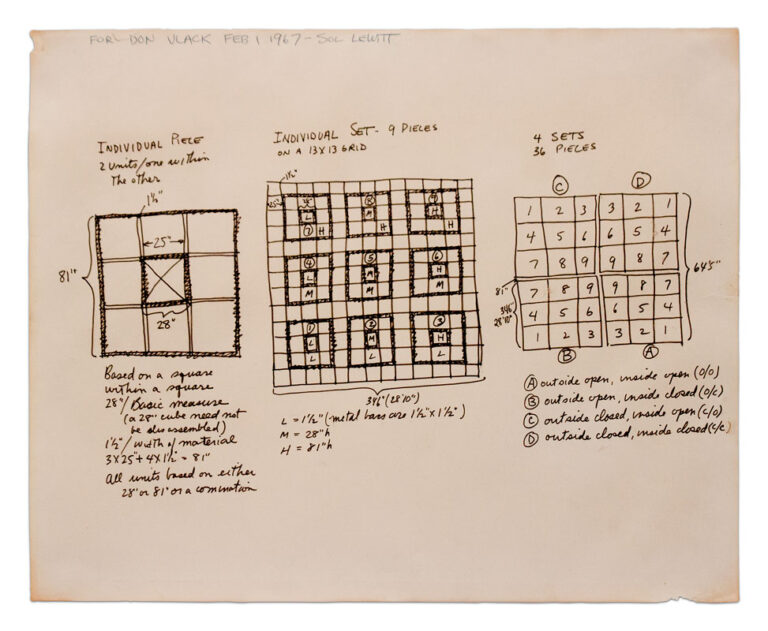 FOR DON VLACK FEB 1 1967 - SOL LEWITT
INDIVIDUAL PIECE
2 units/one within
the other
1½"
25"
81"
28"
Based on a square
within a square
28"/Basic measure
(a 28" cube need not
be disassembled)
1½"/width of material
3X25"+4X1½" = 81"
All units based on either
28" or 81" or a comination
INDIVIDUAL SET - 9 PIECES
ON A 13X13 GRID
1½"
25"
L M H
7 H 8 H 9 H
4 5 6
L M H
M M M
1 2 3
L M H
L L L
346" (28'10")
L = 1½" (metal bars are 1½"X1½")
M = 28"h
H = 81"h
4 SETS
36 PIECES
C D
1 2 3 3 2 1
4 5 6 6 5 4
7 8 9 9 8 7
645"
7 8 9 9 8 7
4 5 6 6 5 4
1 2 3 3 2 1
81"
346"
28'10"
B A
A outside open, inside open (o/o)
B outside open, inside closed (o/c)
C outside closed, inside open (c/o)
D outside closed, inside closed (c/c)